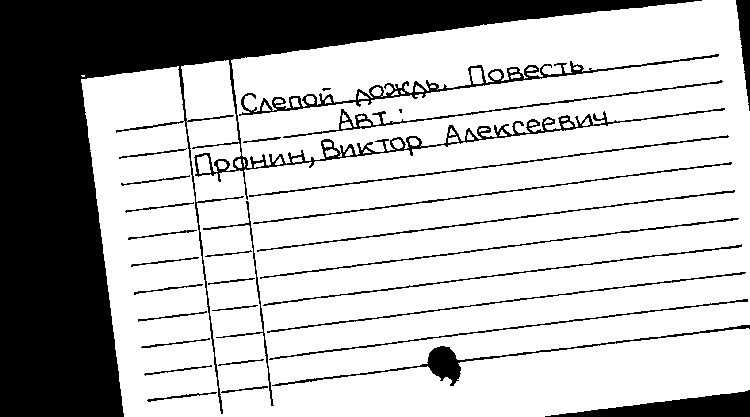 Слепой дождь. Повесть.
Авт.:
Пронин, Виктор Алексеевич